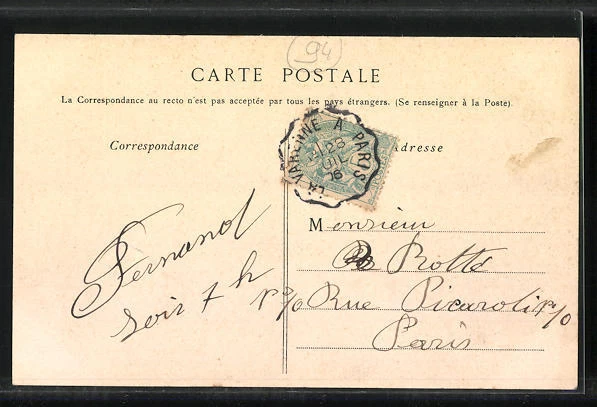 (94)
CARTE POSTALE
La Correspondance au recto n'est pas acceptée par tous les pays étrangers. (Se renseigner à la Poste).
Correspondance
Adresse
LA VARENNE A PARIS
23
JUIL
06
Fernand
soir 7 h
Monsieur
Rotts
Rue
Paris